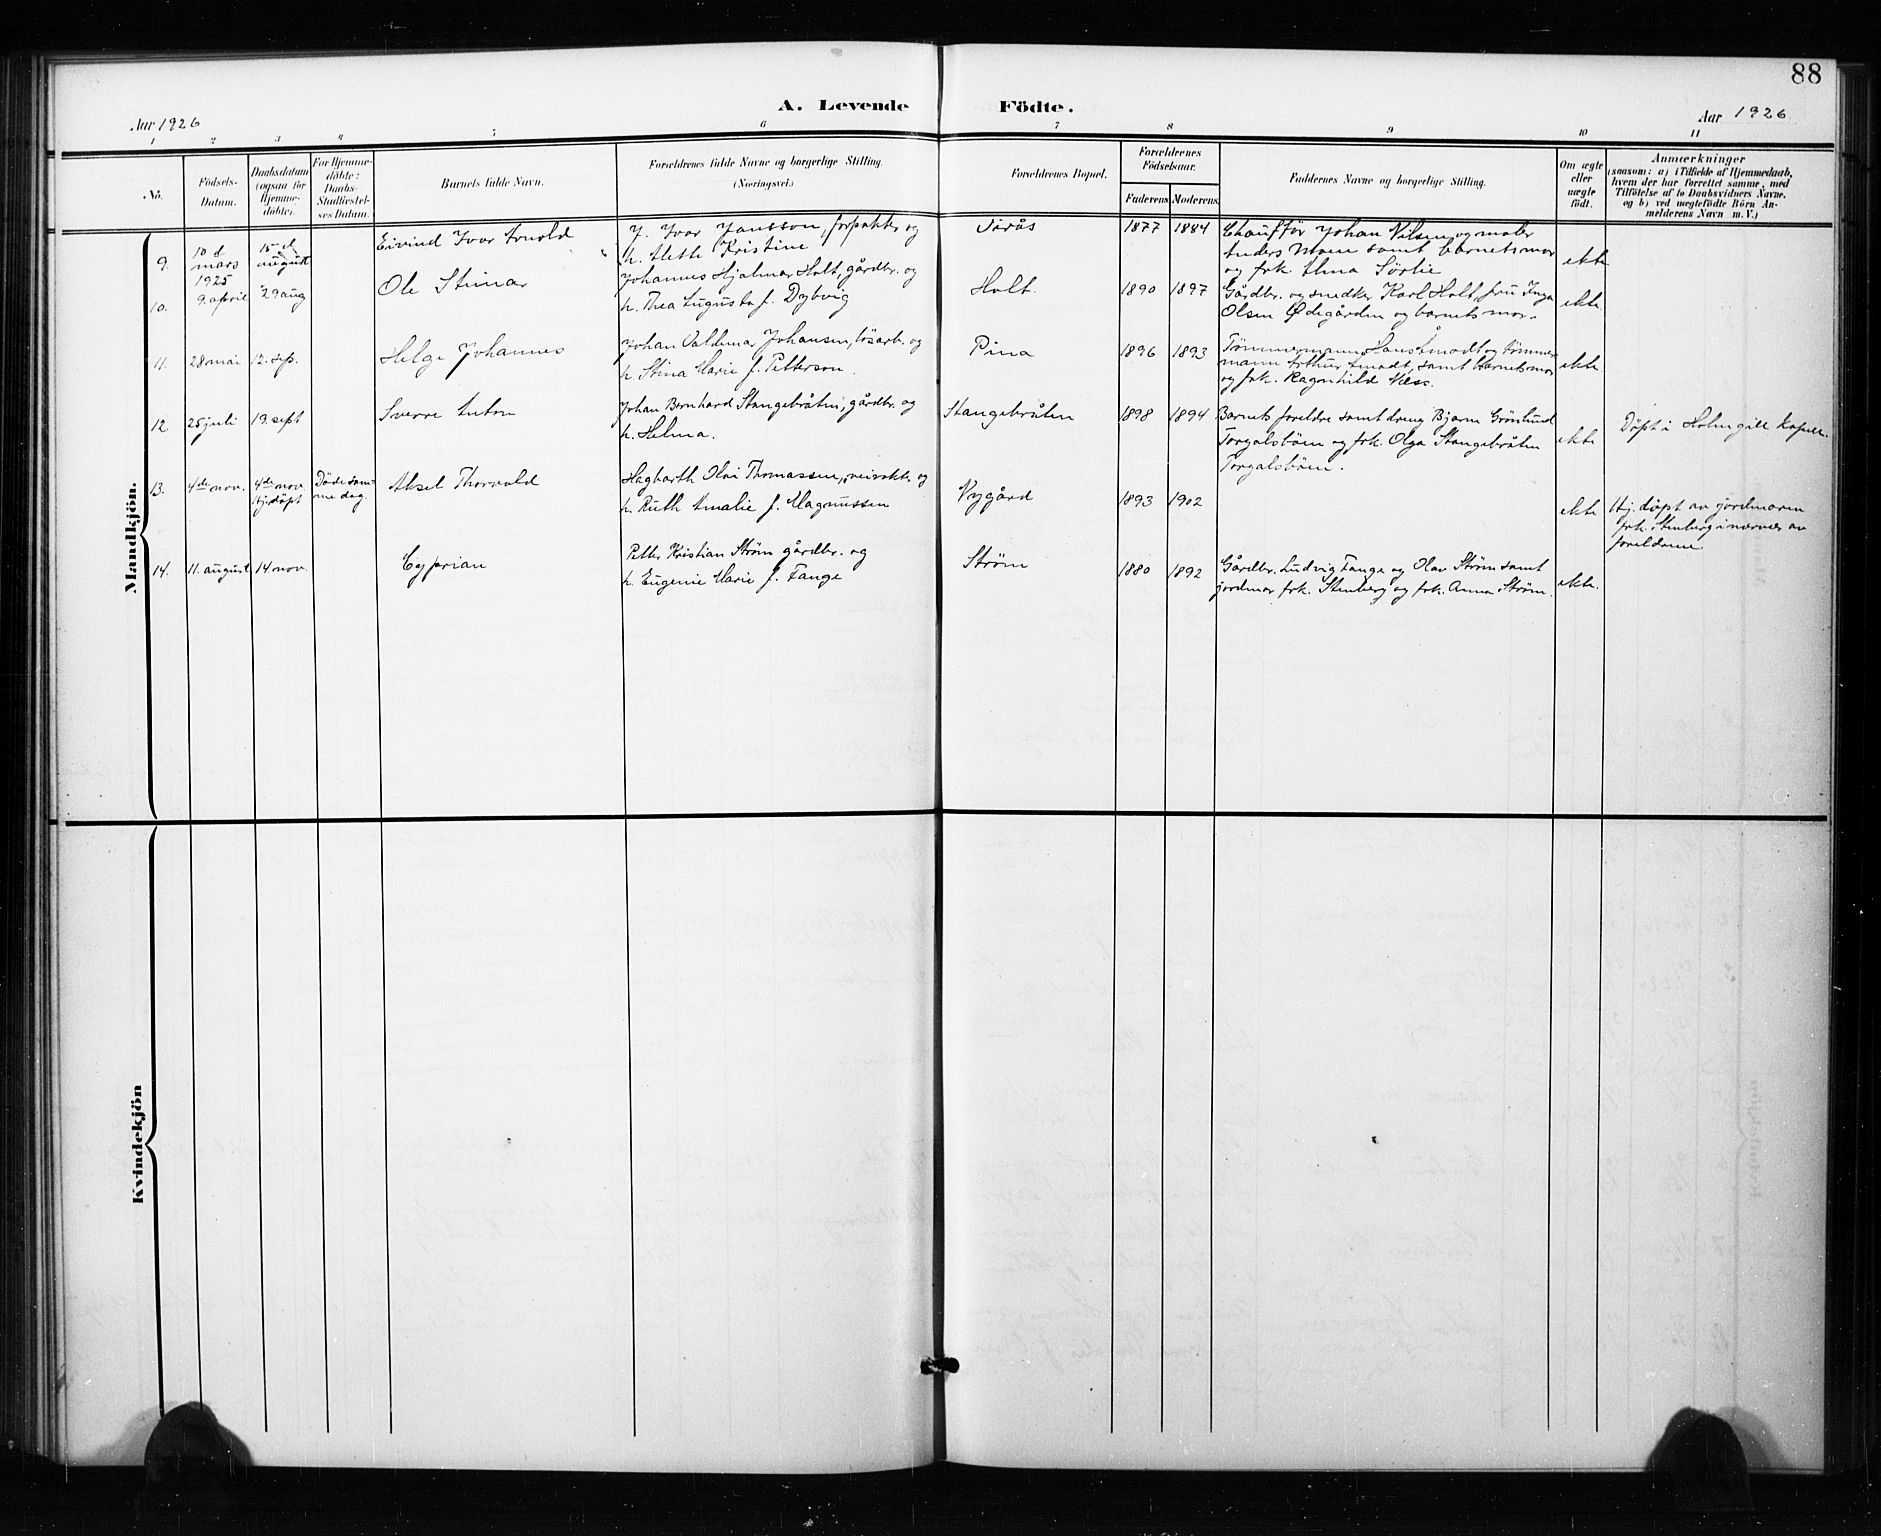 88
A. Levende Födte.
Aar 1926
Aar 1926
1 2 3 4 5 6 7 8 9 10 11
No.
Födsels-Datum.
Daabsdatum (ogsaa for Hjemme-döbte).
For Hjemme-döbte: Daabs-Stadfæstel-ses Datum.
Barnets fulde Navn.
Forældrenes fulde Navne og borgerlige Stilling. (Næringsvei.)
Forældrenes Bopæl.
Forældrenes Födselsaar.
Faderens. Moderens.
Faddernes Navne og borgerlige Stilling.
Om ægte eller uægte födt.
Anmærkninger
(saasom: a) i Tilfælde af Hjemmedaab,
hvem der har forrettet samme, med
Tilföielse af to Daabsvidners Navne.
og b) ved uegtefödte Börn An-
melderens Navn m. V.)
Mandkjön.
9. 10 d mars 1925 15 d august Eivind Ivar Arnold
J. Ivar Jansson, forpakter, og
h. Kristine
1877 1884
Chauffør Johan Nilsen og maler
Anders Moen samt barnets mor
og frk. Alma Sörlie
ekte
10. 9. april 29 aug Ole Steinar
Johannes Hjalmar Holt, gårdbr. og
h. Thea Augusta f. Dybvig
Holt. 1890 1897
Gårdbr. og snedker Karl Holt, fru Inga
Olsen Ødegården og barnets mor.
ekte
11. 28 mai 12. sep. Helge Johannes
Johan Valdemar Johansen, løsarb. og
h. Stina Marie f. Petterson.
Pina 1896 1893
mann Arthur samt barnets mor
og frk. Ragnhild Næss.
ekte
12. 25 juli 19. sept Sverre Anton
Johan Bernhard Stangebråten, gårdbr. og
h. Helma.
Stangebråten 1898 1894
Barnets foreldre samt dreng Bjarne Grönlund
Torgalsbøen og frk. Olga Stangebråten
Torgalsbøen.
ekte
Döpt i Holmgill kapell.
13. 4de nov. 4de nov. Hj. döpt Döde sam-
me dag. Aksel Thorvald
Hagbarth Olai Thomassen, veivokter og
h. Ruth Amalie f. Magnussen
Nygård 1893 1902
ekte
Hj. döpt av jordmoren
frk. Stenberg i nærvær av
foreldrene.
14. 11. august 14 nov. Cyprian
Petter Kristian Strøm gårdbr. og
h. Eugenie Marie f. Fange
Strøm 1880 1892
Gårdbr. Ludvig Fange og Olav Strøm samt
jordmor frk. Stenberg og frk. Anna Strøm.
ekte.
Kvindekjön